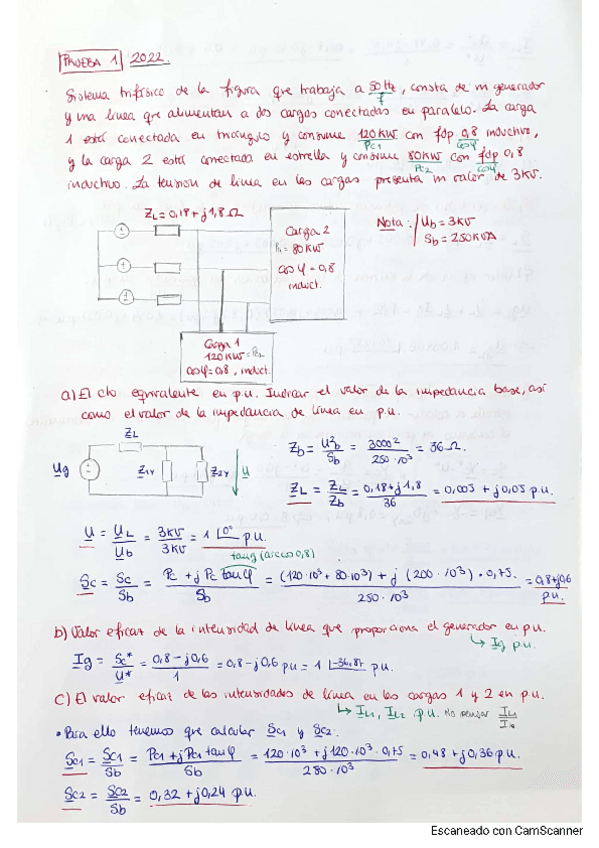 PRUEBA 1 2022.
Sistema trifásico de la figura que trabaja a 50Hz, consta de un generador
f
y una línea que alimentan a dos cargas conectadas en paralelo. La carga
1 está conectada en triángulo y consume 120KW con fdp 0,8 inductivo,
Pc1 cosφ
y la carga 2 está conectada en estrella y consume 80KW con fdp 0,8
Pc2 cosφ
inductivo. La tensión de línea en las cargas presenta un valor de 3KV.
ZL = 0,18 + j1,8 Ω
Carga 2
= 80KW
cosφ = 0,8
induct.
Nota: Ub = 3KV
Sb = 250KVA
Carga 1
120KW = Pc2
cosφ = 0,8, induct.
a) El cto equivalente en p.u. Indicar el valor de la impedancia base, así
como el valor de la impedancia de línea en p.u.
ZL
Ug Z1Y Z2Y U
Zb = U²b / Sb = 3000² / 250·10³ = 36 Ω.
ZL = ZL / Zb = 0,18 + j1,8 / 36 = 0,005 + j0,05 p.u.
U = UL / Ub = 3KV / 3KV = 1 ∟0° p.u.
tang (arccos 0,8)
Sc = Sc / Sb = Pc + j Pc tanφ / Sb = (120·10³ + 80·10³) + j (200·10³)·0,75. / 250·10³ = 0,8 + j0,6 p.u.
b) Valor eficaz de la intensidad de línea que proporciona el generador en p.u.
↳ Ig p.u.
Ig = Sc* / U* = 0,8 - j0,6 / 1 = 0,8 - j0,6 p.u = 1 ∟-36,87 p.u.
c) El valor eficaz de las intensidades de línea en las cargas 1 y 2 en p.u.
↳ IL1, IL2 p.u. No pensar
• Para ello tenemos que calcular Sc1 y Sc2.
Sc1 = Sc1 / Sb = Pc1 + jPc1 tanφ / Sb = 120·10³ + j120·10³·0,75 / 250·10³ = 0,48 + j0,36 p.u.
Sc2 = Sc2 / Sb = 0,32 + j0,24 p.u.
Escaneado con CamScanner